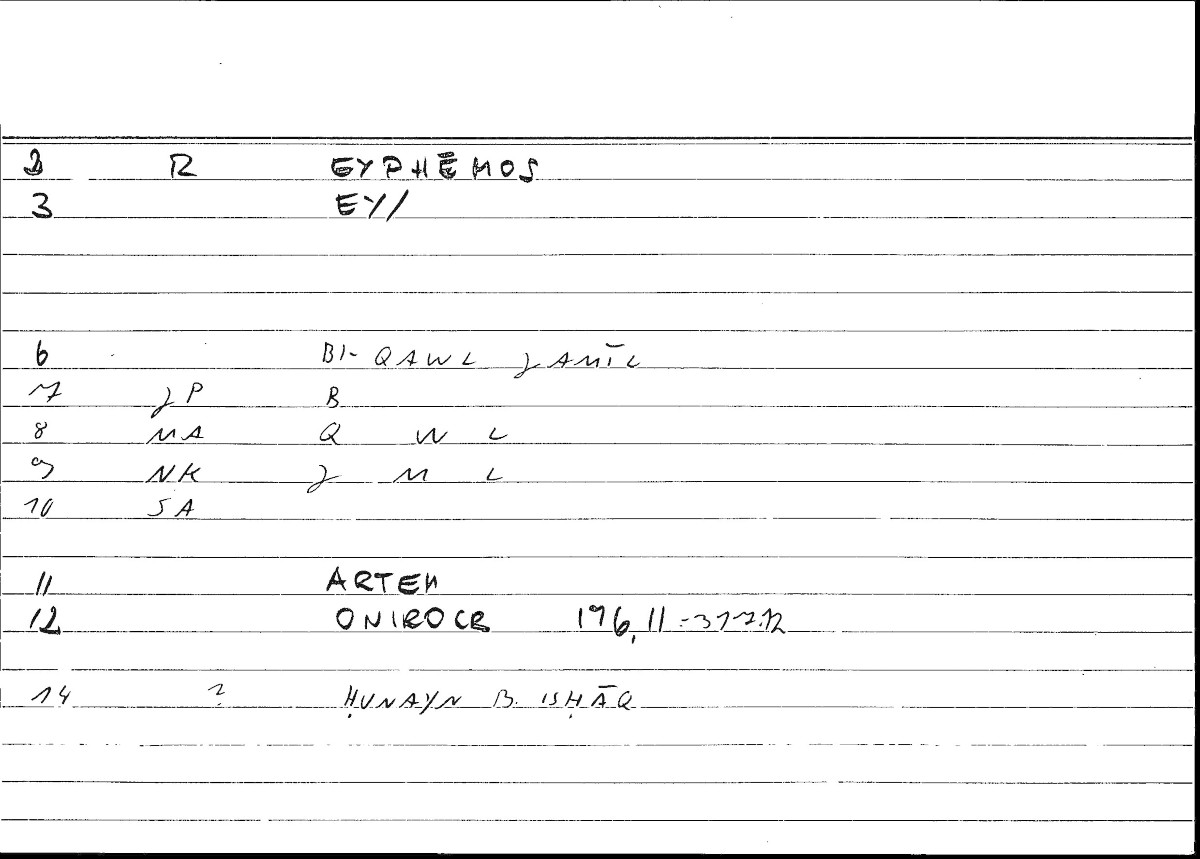 2 R EYPHĒMOS
3 EY/
6 BI-QAWL JAMĪL
7 JP B
8 MA Q W L
9 NK J M L
10 SA
11 ARTEM
12 ONIROCR 196,11 - 317.12
14 ? ḤUNAYN B. ISḤĀQ